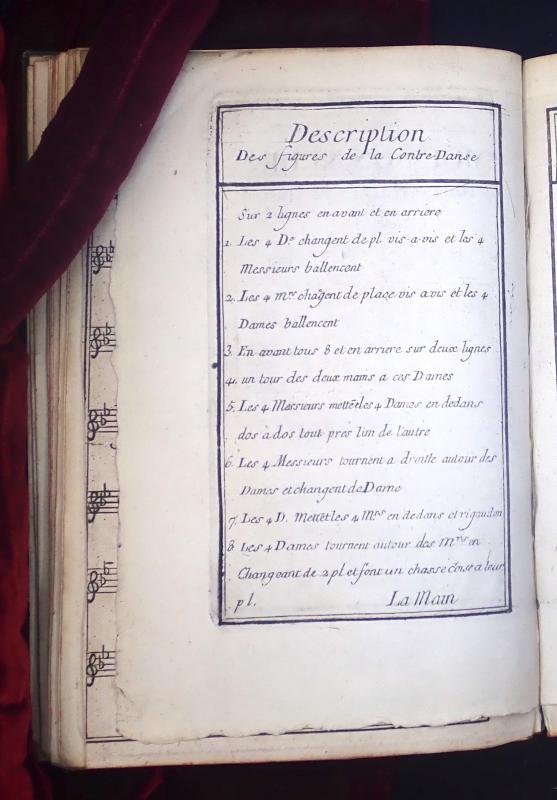 Description
Des figures de la Contre-Danse
Sur 2 lignes en avant et en arriere
1. Les 4 De changent de pl. vis-a-vis et les 4
Messieurs ballencent
2. Les 4 mrs chãgent de place vis avis et les 4
Dames ballencent
3. En avant tous 8 et en arriere sur deux lignes
4. un tour des deux mains a ces Dames
5. Les 4 Messieurs mettẽt les 4 Dames en dedans
dos à dos tout pres l'un de l'autre
6. Les 4 Messieurs tournent a droitte autour des
Dames et changent de Dame
7. Les 4 D. Mettẽt les 4 Mrs en dedans et rigaudon
8 Les 4 Dames tournent autour des Mrs en
Changeant de 2 pl et font un chassé a leur
pl. La Main